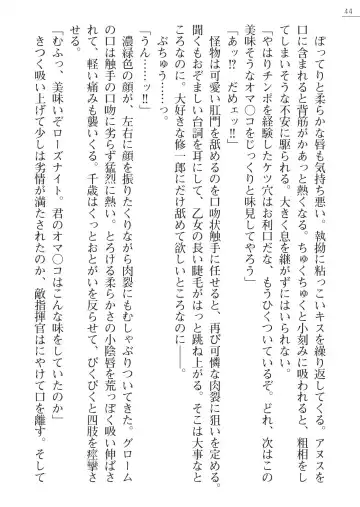 44
ぽってりと柔らかな唇も気持ち悪い。執拗に粘っこいキスを繰り返してくる。アヌスを
口に含まれると背筋がかあっと熱くなる。ちゅくちゅくと小刻みに吸われると、粗相をし
てしまいそうな不安に駆られる。大きく息を継がずにはいられない。
「やはりチンポを経験したケツ穴はお利口だな、もうひくついているぞ。どれ、次はこの
美味そうなオマ〇コをじっくりと味見してやろう」
「あッ!? だめェッ!!」
怪物は可愛い肛門を舐めるのを口吻状触手に任せると、再び可憐な肉裂に狙いを定める。
聞くもおぞましい台詞を耳にして、乙女の長い睫毛がはっと跳ね上がる。そこは大事なと
ころなのに。大好きな修一郎にだけ舐めて欲しいところなのに――。
ぶちゅうっ。
「うん……ッ!!」
濃緑色の顔が、左右に顔を振りたくりながら肉裂にもむしゃぶりついてきた。グローム
の口は触手の口吻に劣らず猛烈に熱い。とろける柔らかさの小陰唇を荒っぽく吸い伸ばさ
れて、軽い痛みも襲いくる。千歳はくっとおとがいを反らせて、ぴくぴくと四肢を痙攣さ
せる。
「むふっ、美味いぞローズナイト。君のオマ〇コはこんな味をしていたのか」
きつく吸い上げて少しは劣情が満たされたのか、敵指揮官はにやけて口を離す。そして